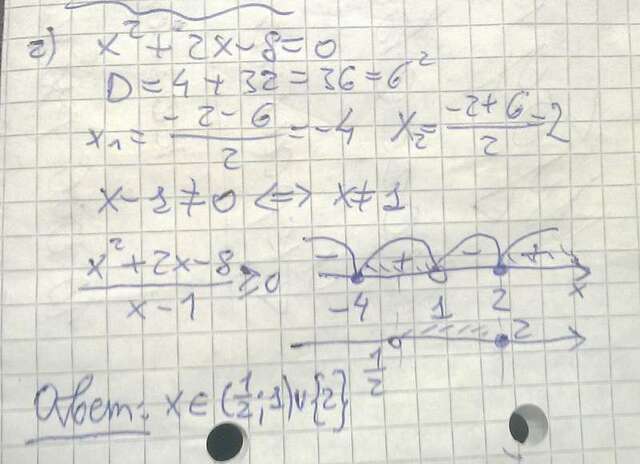 г) x² + 2x - 8 = 0
D = 4 + 32 = 36 = 6²
x₁ = (-2 - 6)/2 = -4 x₂ = (-2 + 6)/2 = 2
x - 1 ≠ 0 <=> x ≠ 1
(x² + 2x - 8)/(x - 1) ≥ 0
- + - +
-4 1 2 x
1/2 2
Ответ: x ∈ (1/2; 1) ∪ {2}